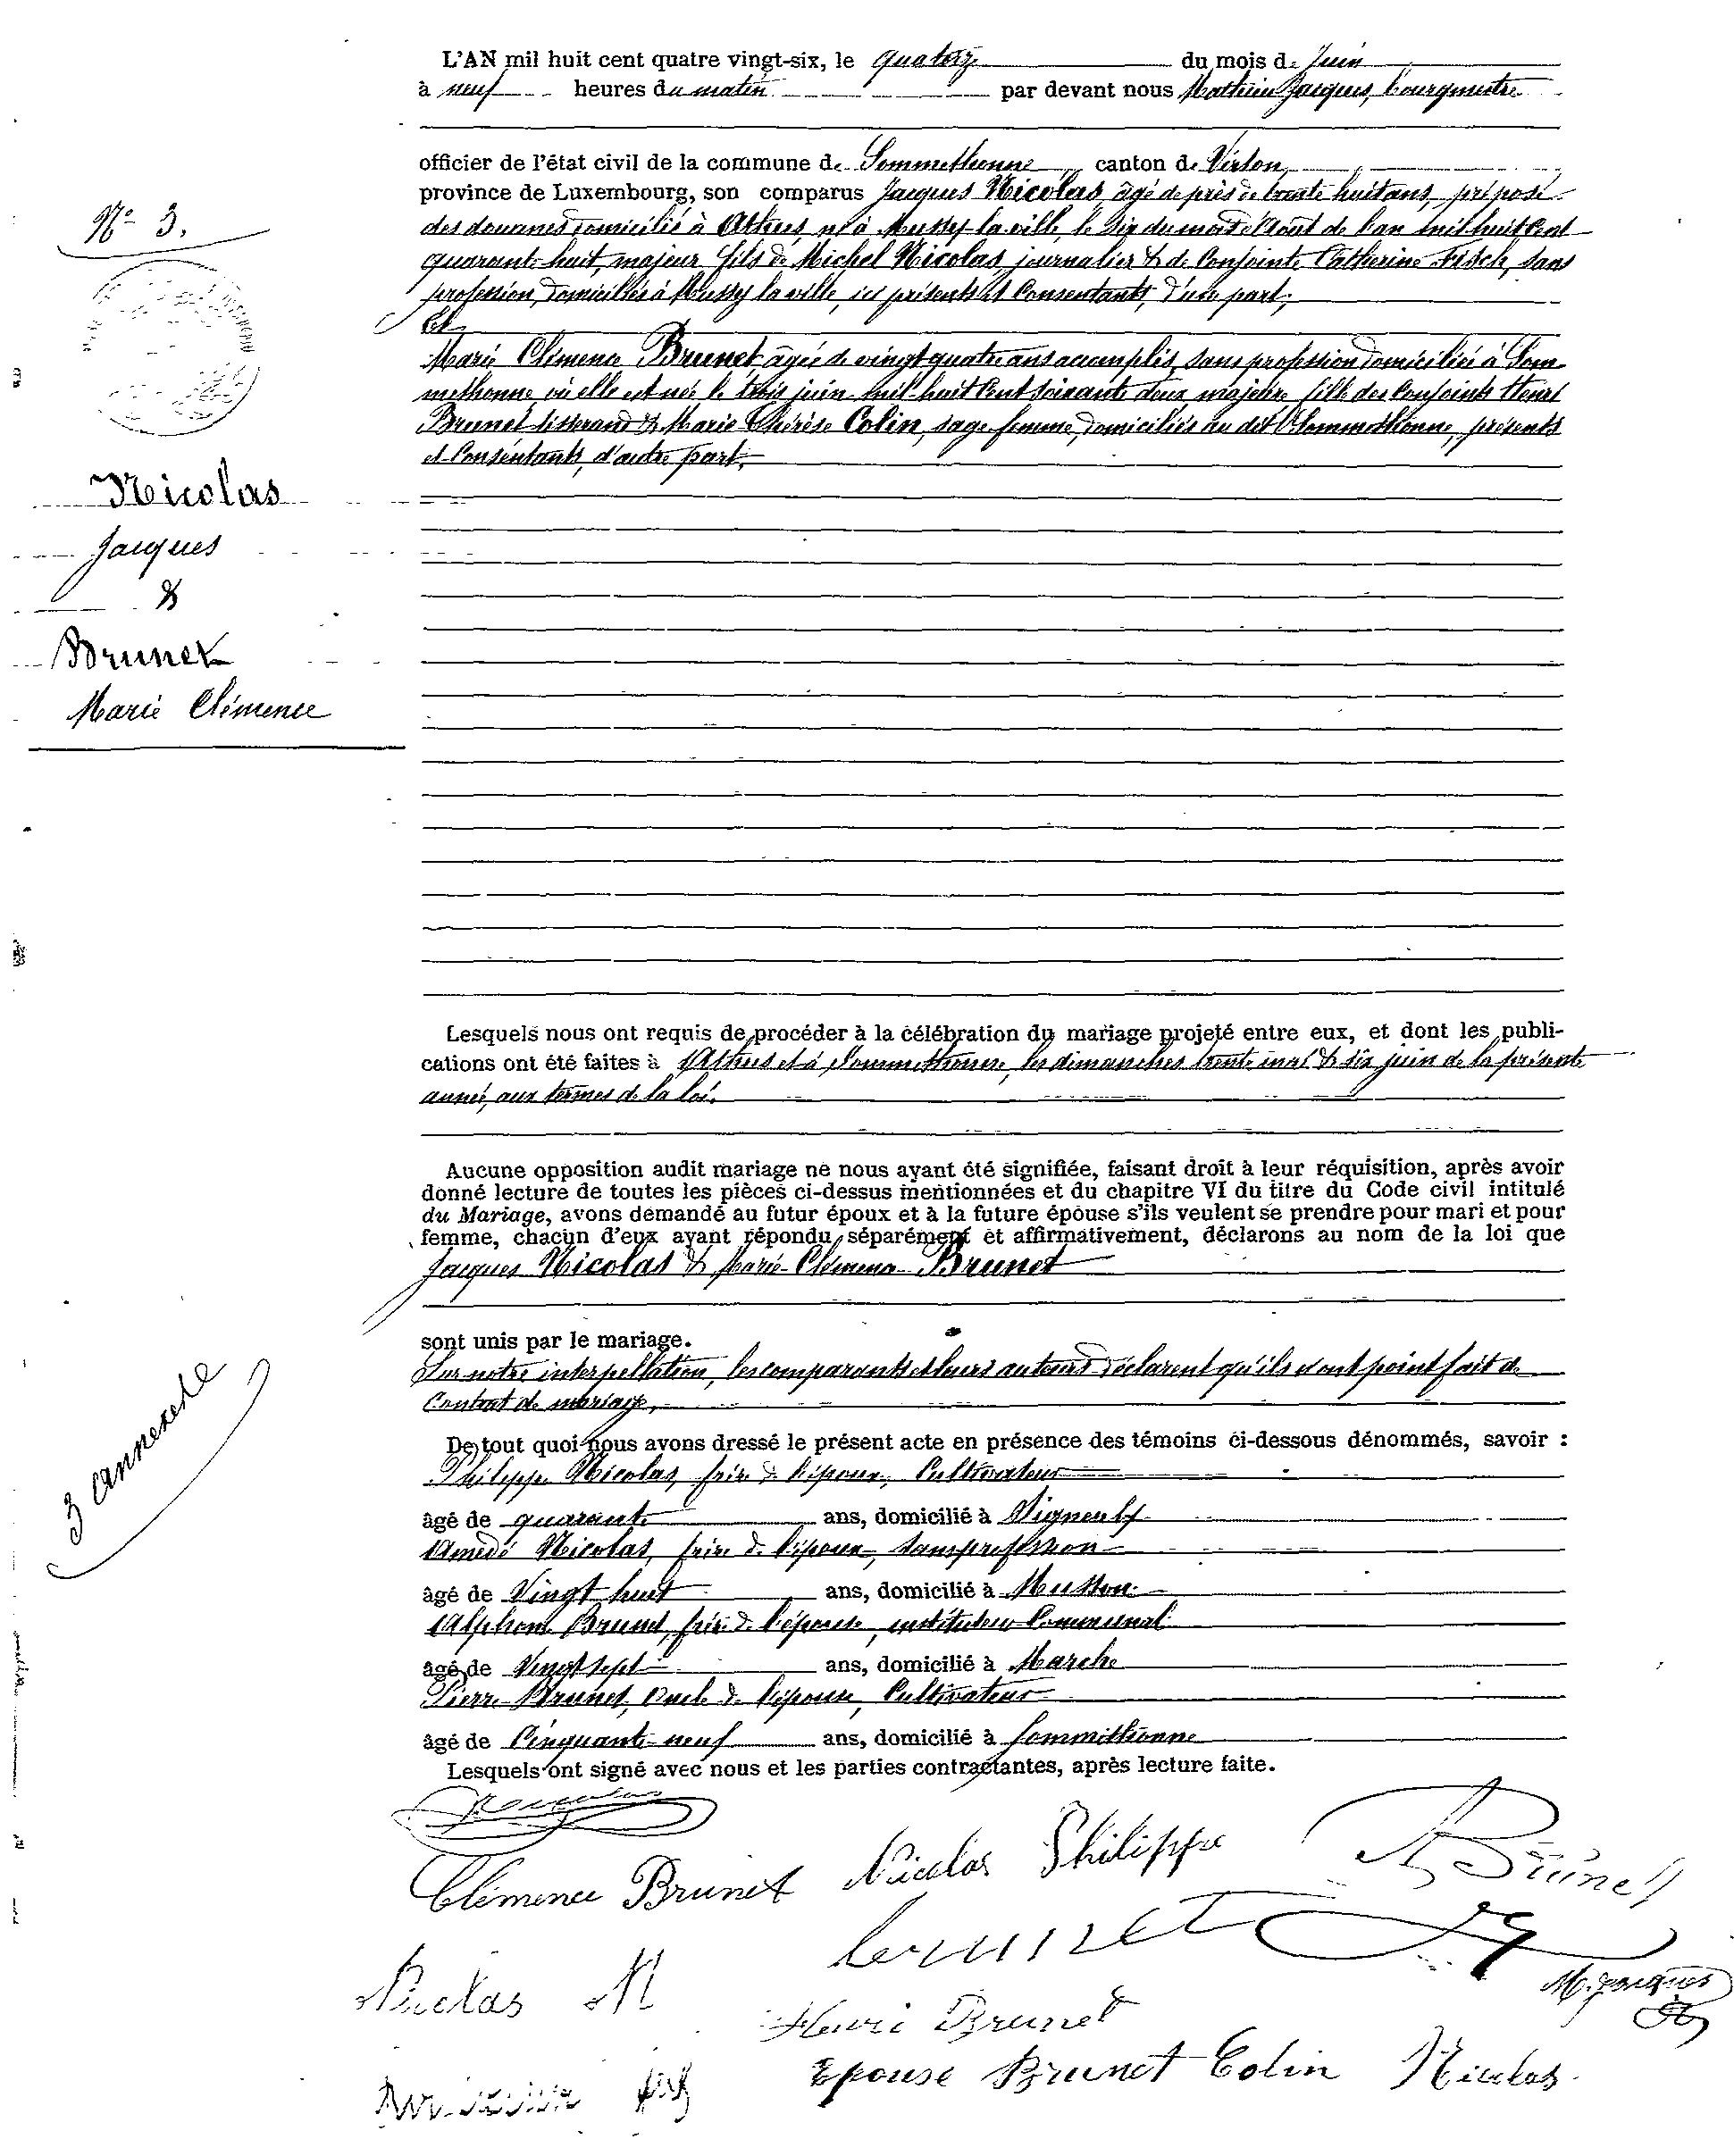 L'AN mil huit cent quatre vingt-six, le quatorze du mois de Juin
à neuf heures du matin par devant nous Mathieu Jacques, bourgmestre
officier de l'état civil de la commune de Sommethonne canton de Virton,
province de Luxembourg, son comparus Jacques Nicolas âgé de près de trente huit ans, préposé
des douanes domicilié à Athus, né à Mussy-la-ville, le dix du mois d'Août de l'an mil huit Cent
quarante huit, majeur fils de Michel Nicolas, journalier & de Conjointe Catherine Fisch, sans
profession, domiciliés à Mussy la ville, ici présents et Consentants, d'une part;
Et
Marie Clémence Brunet âgée de vingt quatre ans accomplis, sans profession domiciliée à Som-
methonne où elle est née le trois juin mil huit Cent soixante deux, majeure fille des Conjoints Henri
Brunet tisserand & Marie Thérèse Colin, sage femme, domiciliés au dit Sommethonne, présents
et Consentants, d'autre part.
N° 3.
Nicolas
Jacques
&
Brunet
Marie Clémence
Lesquels nous ont requis de procéder à la célébration du mariage projeté entre eux, et dont les publi-
cations ont été faites à Athus et à Sommethonne, les dimanches trente mai & six juin de la présente
année, aux termes de la loi.
Aucune opposition audit mariage ne nous ayant été signifiée, faisant droit à leur réquisition, après avoir
donné lecture de toutes les pièces ci-dessus mentionnées et du chapitre VI du titre du Code civil intitulé
du Mariage, avons demandé au futur époux et à la future épouse s'ils veulent se prendre pour mari et pour
femme, chacun d'eux ayant répondu séparément et affirmativement, déclarons au nom de la loi que
Jacques Nicolas & Marie Clémence Brunet
sont unis par le mariage.
Sur notre interpellation, les comparants et leurs auteurs déclarent qu'ils n'ont point fait de
Contrat de mariage.
3 annexes
De tout quoi nous avons dressé le présent acte en présence des témoins ci-dessous dénommés, savoir :
Philippe Nicolas, frère de l'époux, Cultivateur
âgé de quarante ans, domicilié à Signeulx
Amédé Nicolas, frère de l'époux, sans profession
âgé de Vingt huit ans, domicilié à Musson
Alphonse Brunet, frère de l'épouse, instituteur Communal
âgé de Vingt sept ans, domicilié à Marche
Pierre Brunet, Oncle de l'épouse, Cultivateur
âgé de Cinquante-neuf ans, domicilié à Sommethonne
Lesquels ont signé avec nous et les parties contractantes, après lecture faite.
Nicolas
Clémence Brunet Nicolas Philippe A Brunet
brunet
Nicolas M M. Jacques
Henri Brunet
Epouse Brunet Colin Nicolas